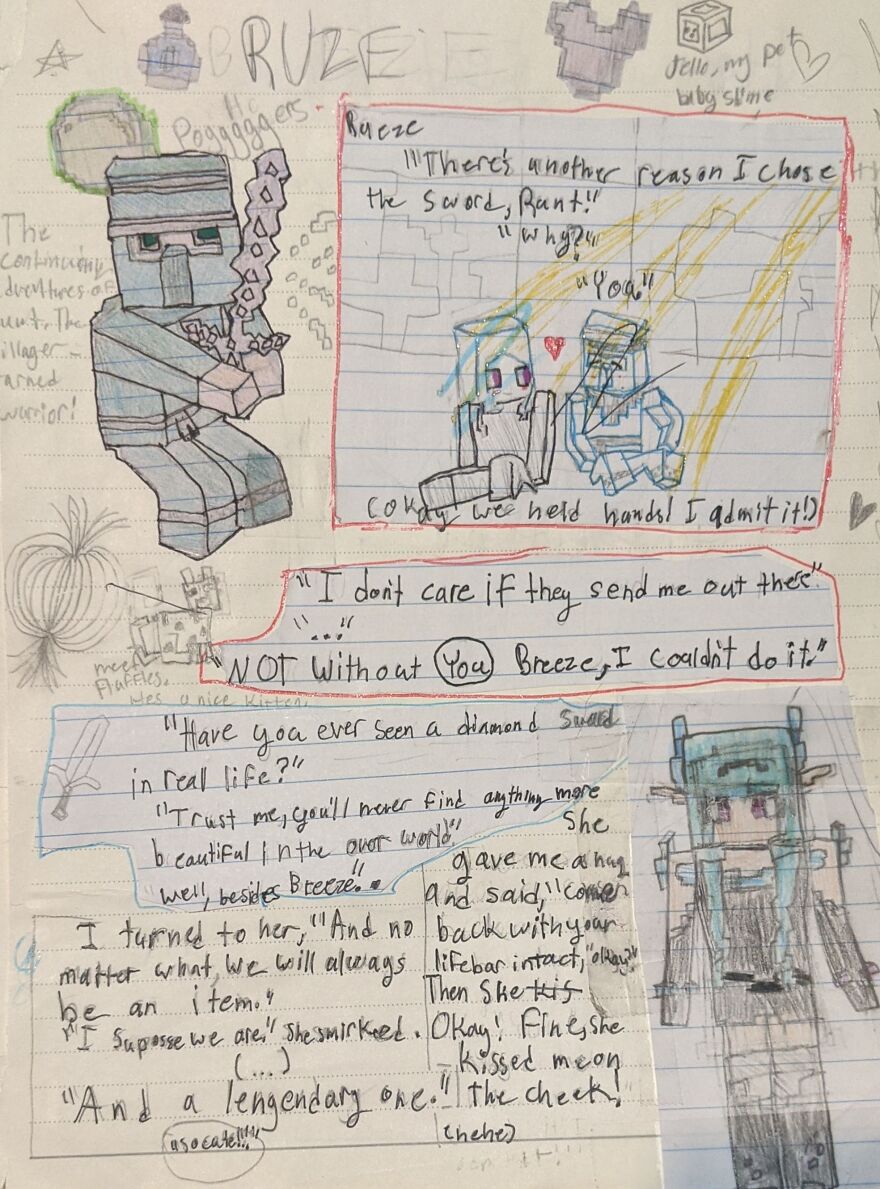 BRUZE
Jello, my pet
baby slime
Hi
Poggggggers
The
continuing
Adventures of
Runt, The
villager
turned
warrior!
Rueze
"There's another reason I chose
the sword, Runt."
"why?"
"You."
(okay! we held hands! I admit it!)
"I don't care if they send me out there"
"..."
"NOT without You Breeze, I couldn't do it."
meet
Fluffles,
Hes a nice kitten.
"Have you ever seen a diamond sword
in real life?"
"Trust me, you'll never find anything more
beautiful in the over world"
well, besides Breeze."
I turned to her, "And no
matter what, we will always
be an item."
"I suposse we are," she smirked.
(...)
"And a lengendary one."
usocute!!!!
She
gave me a hug
and said, "comer
back with your
lifebar intact, "okay?"
Then she kis
Okay! Fine, she
kissed me on
the cheek!
(hehe)